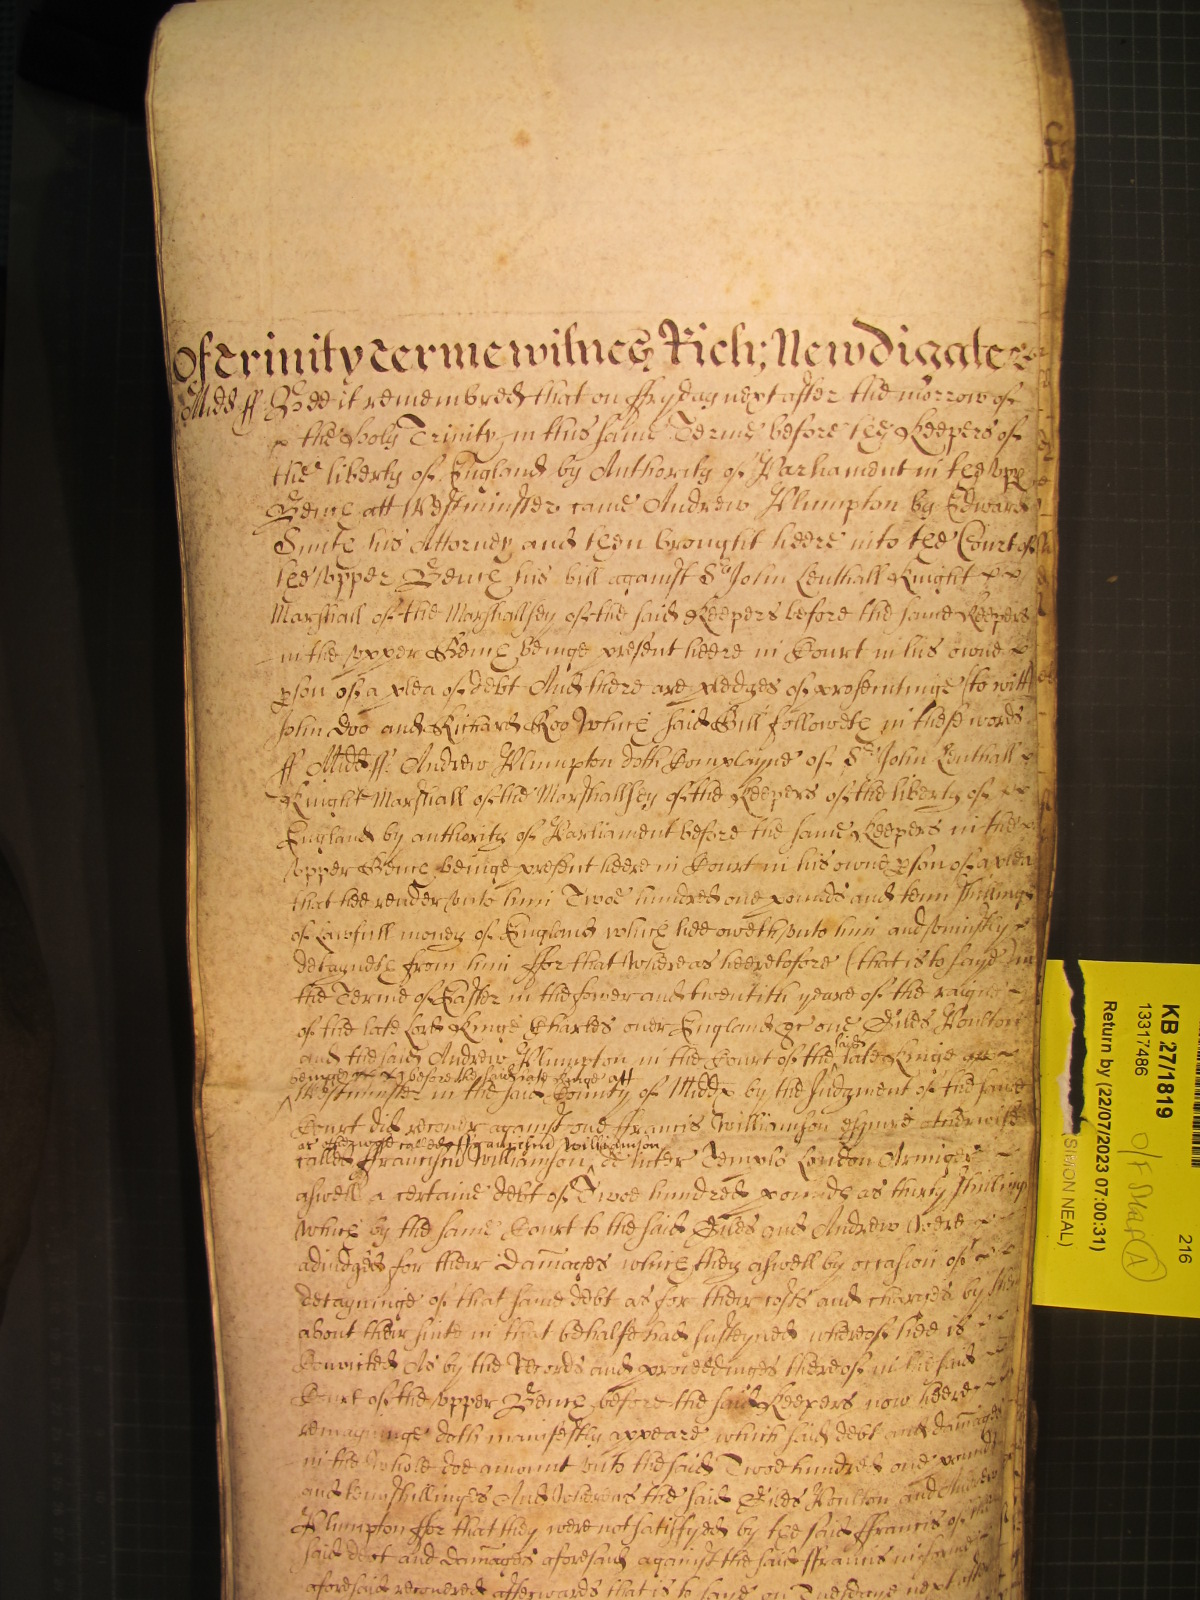 Of Trinity Terme witnes Rich: Newdigate
Midd ss Bee it remembred that on ffryday next after the morrow of
the Holy Trinity in this same Terme before the Keepers of
the liberty of England by Authority of Parliament in the upp
Bench att Westminster came Andrew Plumpton by Edward
Smith his Attorney and then brought heere into the Court of
the upper Bench his bill against Sr John Lenthall Knight
Marshall of the Marshallsey of the said Keepers before the same Keepers
in the upper Bench beinge present heere in Court in his owne
pson of a plea of debt And there are pledges of prosecutinge (to witt)
John Doo and Richard Roo Which said Bill followeth in these words
ss Midd ss. Andrew Plumpton doth Complayne of Sr John Lenthall
Knight Marshall of the Marshallsey of the Keepers of the liberty of
England by authority of Parliament before the same Keepers in the
upper Bench beinge present heere in Court in his owne pson of a plea
that hee render unto him Twoe hundred one pounds and tenn shillings
of Lawfull money of England which hee oweth unto him and uniustly
detayneth from him ffor that Whereas heeretofore (that is to saye) in
the Terme of Easter in the fower and twentith yeare of the raigne
of the late Lord Kinge Charles over England &c one Giles Poulton
and the said Andrew Plumpton in the Court of the said late Kinge
before the said late Kinge att
Westminster in the said County of Midd by the Judgment of the same
Court did recover against one ffrancis Williamson esquire otherwise
or otherwise called ffrancis Williamson
called ffrancisc Williamson de Inter Templo London Armiger
aswell a certaine debt of Twoe hundred pounds as thirty shillings
which by the same Court to the said Giles and Andrew were
adiudged for their damages which they aswell by occasion of
detayninge of that same debt as for their costs and charges by them
about their suite in that behalfe had susteyned whereof hee is
Convicted As by the Records and proceedinges thereof in the said
Court of the upper Bench before the said Keepers now heere
remayninge doth manifestly appeare which said debt and damages
in the whole doe amount unto the said Twoe hundred one pounds
and tenn shillinges And Whereas the said Giles Poulton and Andrew
Plumpton ffor that they were not satisfyed by the said ffrancis of the
said debt and damages aforesaid against the said ffrancis in forme
aforesaid recovered afterwards that is to saye on Tuesdaye next after
KB 27/1819
13317486
Return by (22/07/2023 07:00:31)
(SIMON NEAL)
216